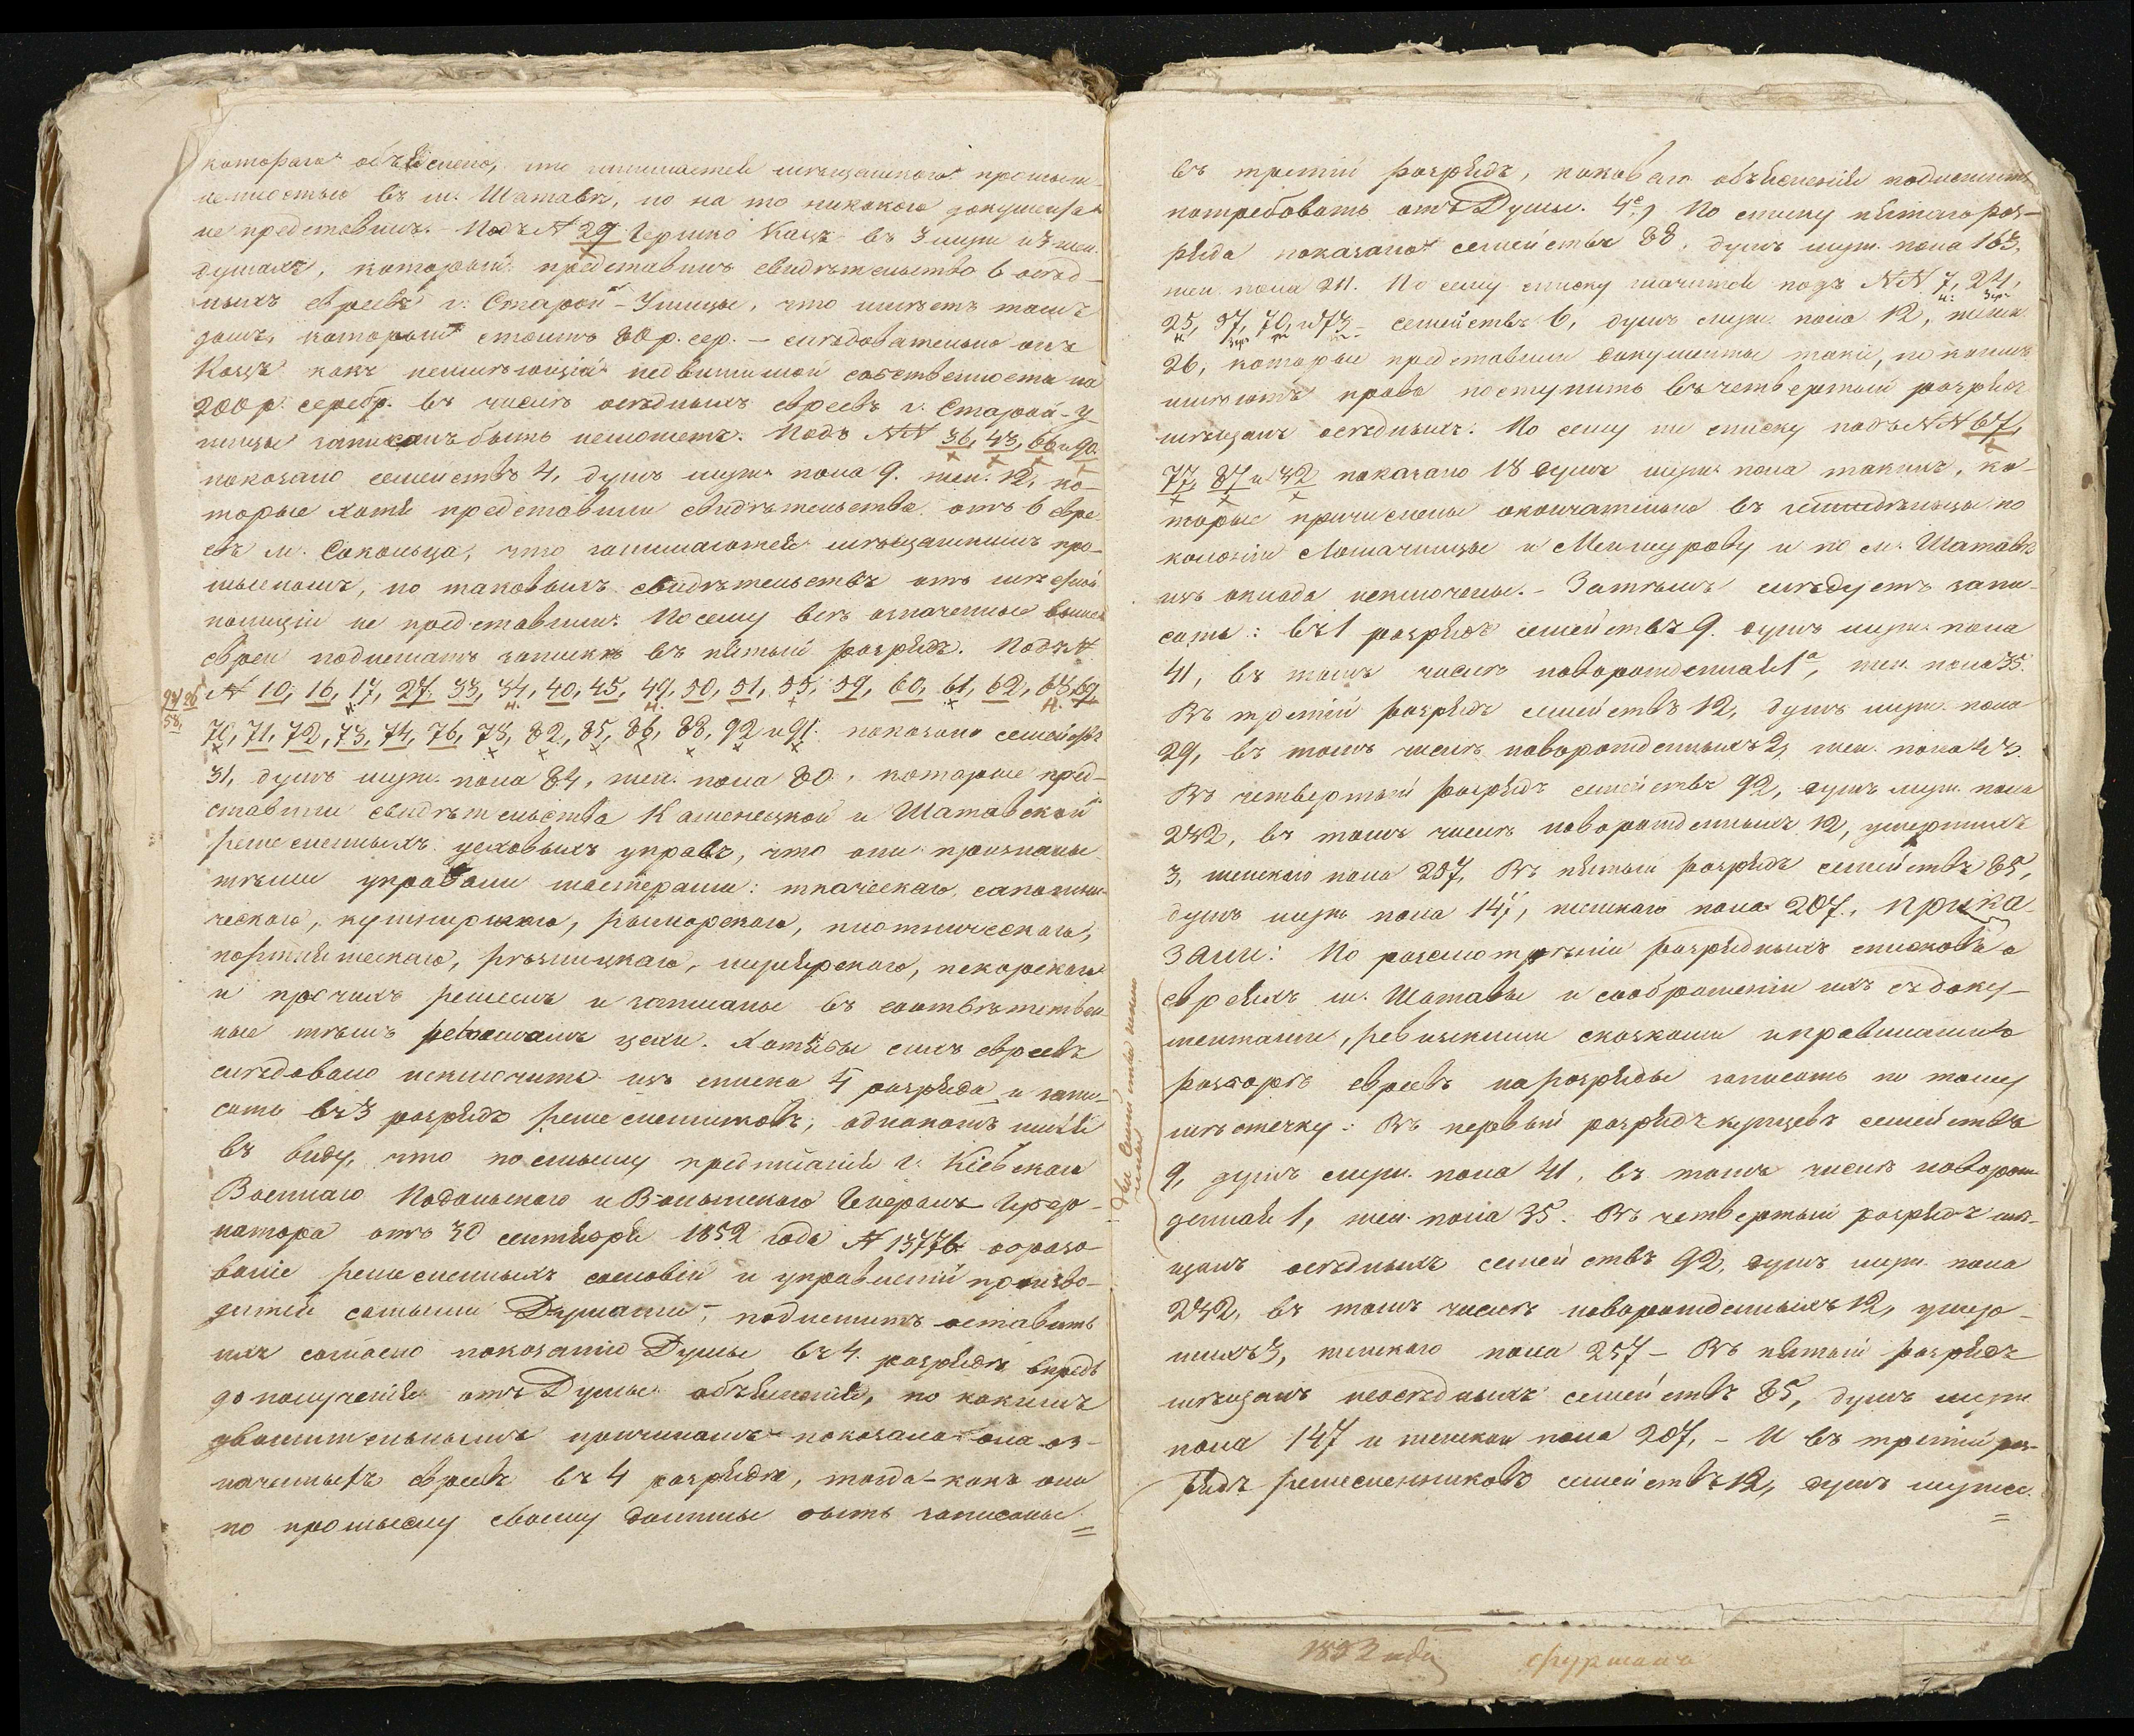 котораго объяснено, что занимается мѣщанскою промыш-
ленностью въ м. Шатавѣ, но на то никакого документа
не представилъ. Подъ № 29 Гершко Кацъ въ 3 муж. и 3 жен.
душахъ, который представилъ свидѣтельство 6 осѣд-
лыхъ евреевъ г. Старой-Ушицы, что имѣетъ тамъ
домъ, который стоитъ 80 р. сер. – слѣдовательно онъ
Кацъ какъ неимѣющій недвижимой собственности на
200 р. серебр. въ числѣ осѣдлыхъ евреевъ г. Старой-У
шицы записанъ быть неможетъ. Подъ №№ 36, 43, 66 и 90.
показано семействъ 4, душъ муж. пола 9. жен. 12, ко-
торые хотя представили свидѣтельства отъ 6 евре-
евъ м. Сокольца, что занимаются мѣщанскимъ про-
мысломъ, но таковыхъ свидѣтельствъ отъ мѣстной
полиціи не представили. Посему всѣ означенные выше
евреи подлежатъ запискѣ въ пятый разрядъ. Подъ №
24 26 № 10, 16, 17, 27, 33, 34, 40, 45, 49, 50, 51, 55, 59, 60, 61, 62, 68, 69,
58, 70, 71, 72, 73, 74, 76, 78, 82, 85, 86, 88, 92 и 91. показано семействъ
31, душъ муж. пола 84, жен. пола 80, которые пред-
ставили свидѣтельства Каменецкой и Шатавской
ремесленныхъ цеховыхъ управъ, что они признаны
тѣми управами мастерами: ткаческаго, сапожни-
ческаго, кушнирскаго, рымарскаго, плотническаго,
портняжескаго, рѣзницкаго, пекарскаго
и прочихъ ремеслъ и записаны въ соотвѣтствен-
ные тѣмъ ремесламъ цехи. Хотябы сихъ евреевъ
слѣдовало исключить изъ списка 4 разряда и запи-
сать въ 3 разрядъ ремесленниковъ, однакожъ имѣя
въ виду, что по смыслу предписанія г. Кіевскаго
Военнаго Подольскаго и Волынскаго Генералъ Губер-
натора отъ 30 сентября 1852 года № 13776 образо-
ваніе ремесленныхъ сословій и управленій произво-
дится самыми Думами, подлежитъ оставить
ихъ согласно показанію Думы въ 4 разрядѣ впредь
до полученія отъ Думы объясненія, по какимъ
уважительнымъ причинамъ показала она оз-
наченныхъ евреевъ въ 4 разрядѣ, тогда-какъ они
по промыслу своему должны быть записаны =
въ третій разрядъ, каковаго объясненія подлежитъ
потребовать отъ Думы. 4е, По списку пятаго раз-
ряда показано семействъ 88, душъ муж. пола 163,
жен. пола 211. По сему списку значится подъ №№ 7, 24,
25, 57, 70, и 73 – семействъ 6, душъ муж. пола 12, женск.
26, которые представили документы такіе, по коимъ
имѣютъ право поступить въ четвертый разрядъ
мѣщанъ осѣдлыхъ. По сему же списку подъ №№ 67,
77, 87 и 32 показано 18 душъ муж. пола такихъ, ко-
торые причислены окончательно въ земледѣльцы по
колоніи Ломачинцы и Межирову и по м. Шатавѣ
изъ оклада исключены. – Затѣмъ слѣдуетъ запи-
сать: въ 1 разрядъ семействъ 9. душъ муж. пола
41, въ томъ числѣ новорожденный 1а, жен. пола 35.
Въ третій разрядъ семействъ 12, душъ муж. пола
29, въ томъ числѣ новорожденныхъ 2, жен. пола 43.
Въ четвертый разрядъ семействъ 92, душъ муж. пола
242, въ томъ числѣ новорожденныхъ 12, умершихъ
3, женскаго пола 257, Въ пятый разрядъ семействъ 85,
душъ муж. пола 147, женскаго пола 207. Прика-
зали: По разсмотрѣніи разрядныхъ списковъ о
евреяхъ м. Шатавы и соображеніи ихъ съ доку-
ментами, ревизскими сказками и правилами о
разборѣ евреевъ на разряды записать по тому
мѣстечку: Въ первый разрядъ купцевъ семействъ
9, душъ муж. пола 41, въ томъ числѣ новорож-
денный 1, жен. пола 35. Въ четвертый разрядъ мѣ-
щанъ осѣдлыхъ семействъ 92, душъ муж. пола
242, въ томъ числѣ новорожденныхъ 12, умер-
шихъ 3, женскаго пола 257 – Въ пятый разрядъ
мѣщанъ неосѣдлыхъ семействъ 85, душъ муж.
пола 147 и женскаго пола 207, – И въ третій раз-
рядъ ремесленниковъ семействъ 12, душъ мужес. =
1853 года